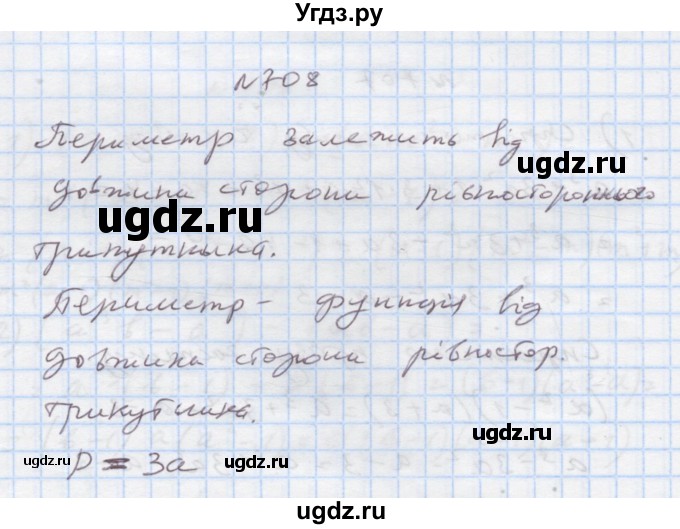 Угдз.ру
№708
Периметр залежить від
довжина сторони рівностороннього
трикутника.
Периметр - функція від
довжина сторони рівностор.
трикутника.
P = 3a
ugdz.ru
ugdz.ru
ugdz.ru
ugdz.ru
ugdz.ru
ugdz.ru
ugdz.ru